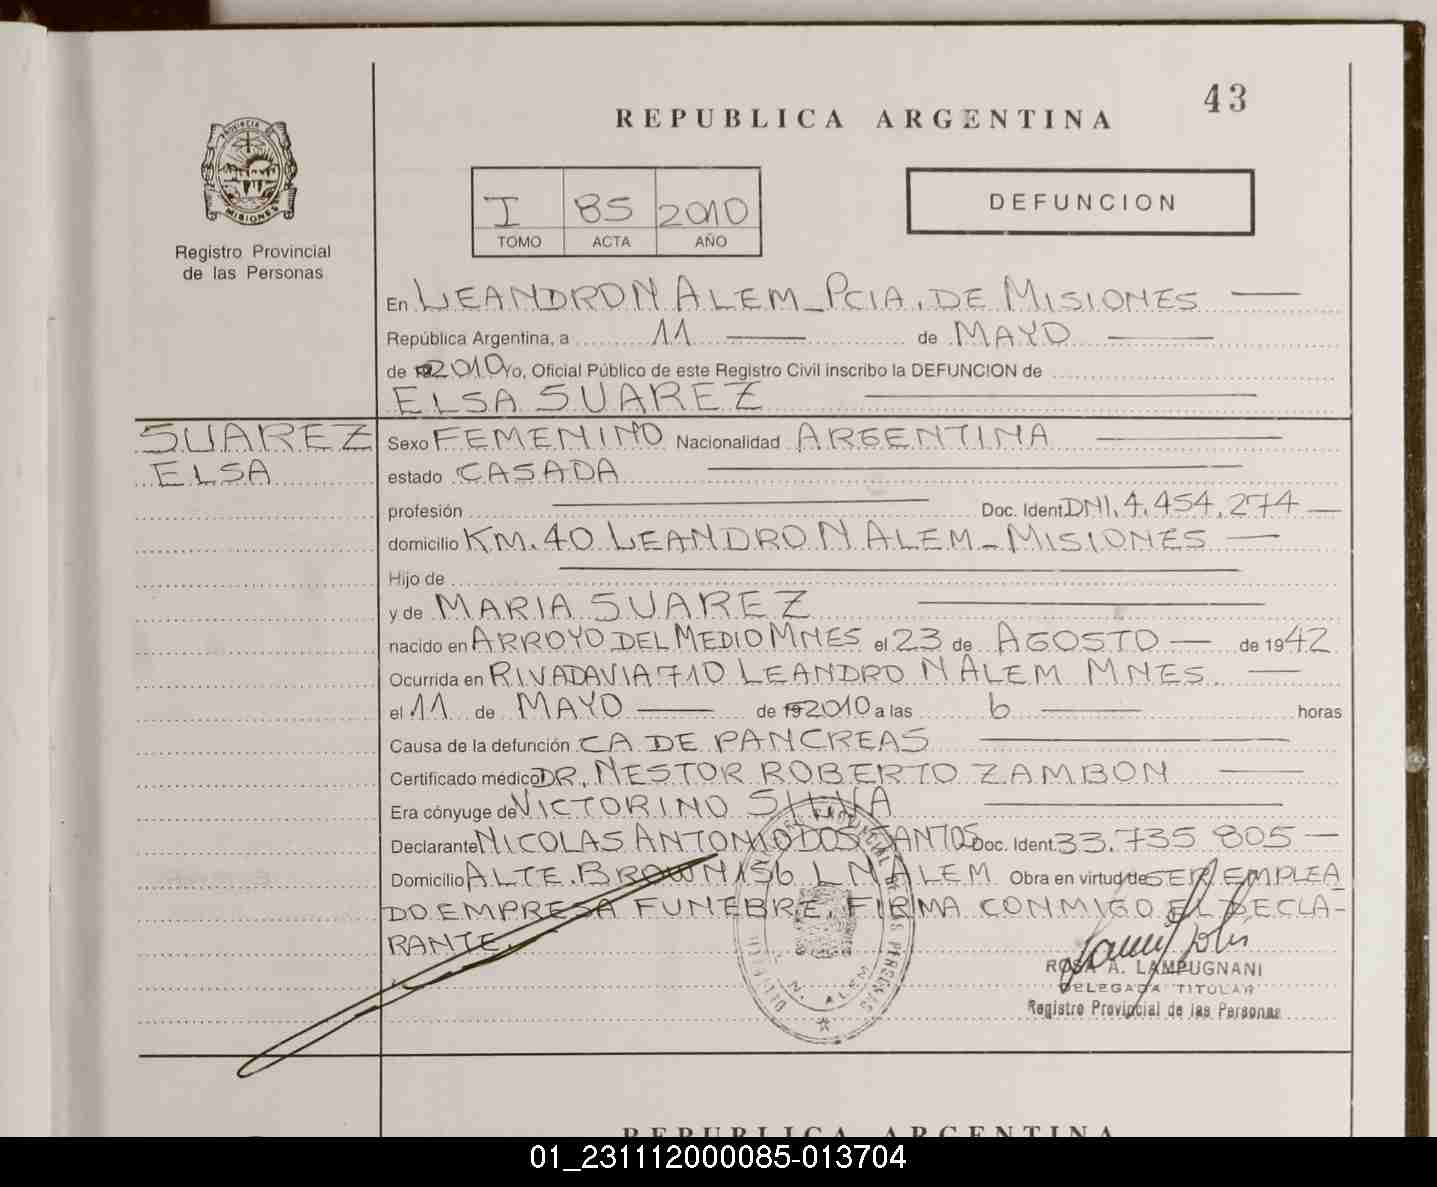 43
REPUBLICA ARGENTINA
PROVINCIA DE
MISIONES
Registro Provincial
de las Personas
I 85 2010
TOMO ACTA AÑO
DEFUNCION
En LEANDRO N ALEM_PCIA. DE MISIONES
República Argentina, a 11 de MAYO
de 2010 Yo, Oficial Público de este Registro Civil inscribo la DEFUNCION de
ELSA SUAREZ
SUAREZ
ELSA
Sexo FEMENINO Nacionalidad ARGENTINA
estado CASADA
profesión Doc. Ident. DNI. 4.454.274
domicilio KM. 40 LEANDRO N ALEM - MISIONES
Hijo de
y de MARIA SUAREZ
nacido en ARROYO DEL MEDIO MNES el 23 de AGOSTO de 1942
Ocurrida en RIVADAVIA 710 LEANDRO N ALEM MNES.
el 11 de MAYO de 192010 a las 6 horas
Causa de la defunción CA DE PANCREAS
Certificado médico DR. NESTOR ROBERTO ZAMBON
Era cónyuge de VICTORINO SILVA
Declarante NICOLAS ANTONIO DOS SANTOS Doc. Ident. 33.735 805
Domicilio ALTE. BROWN 156 L N ALEM Obra en virtud de SER EMPLEA
DO EMPRESA FUNEBRE. FIRMA CONMIGO EL DECLA-
RANTE.
ROSA A. LAMPUGNANI
DELEGADA TITULAR
Registro Provincial de las Personas
REPUBLICA ARGENTINA
01_231112000085-013704